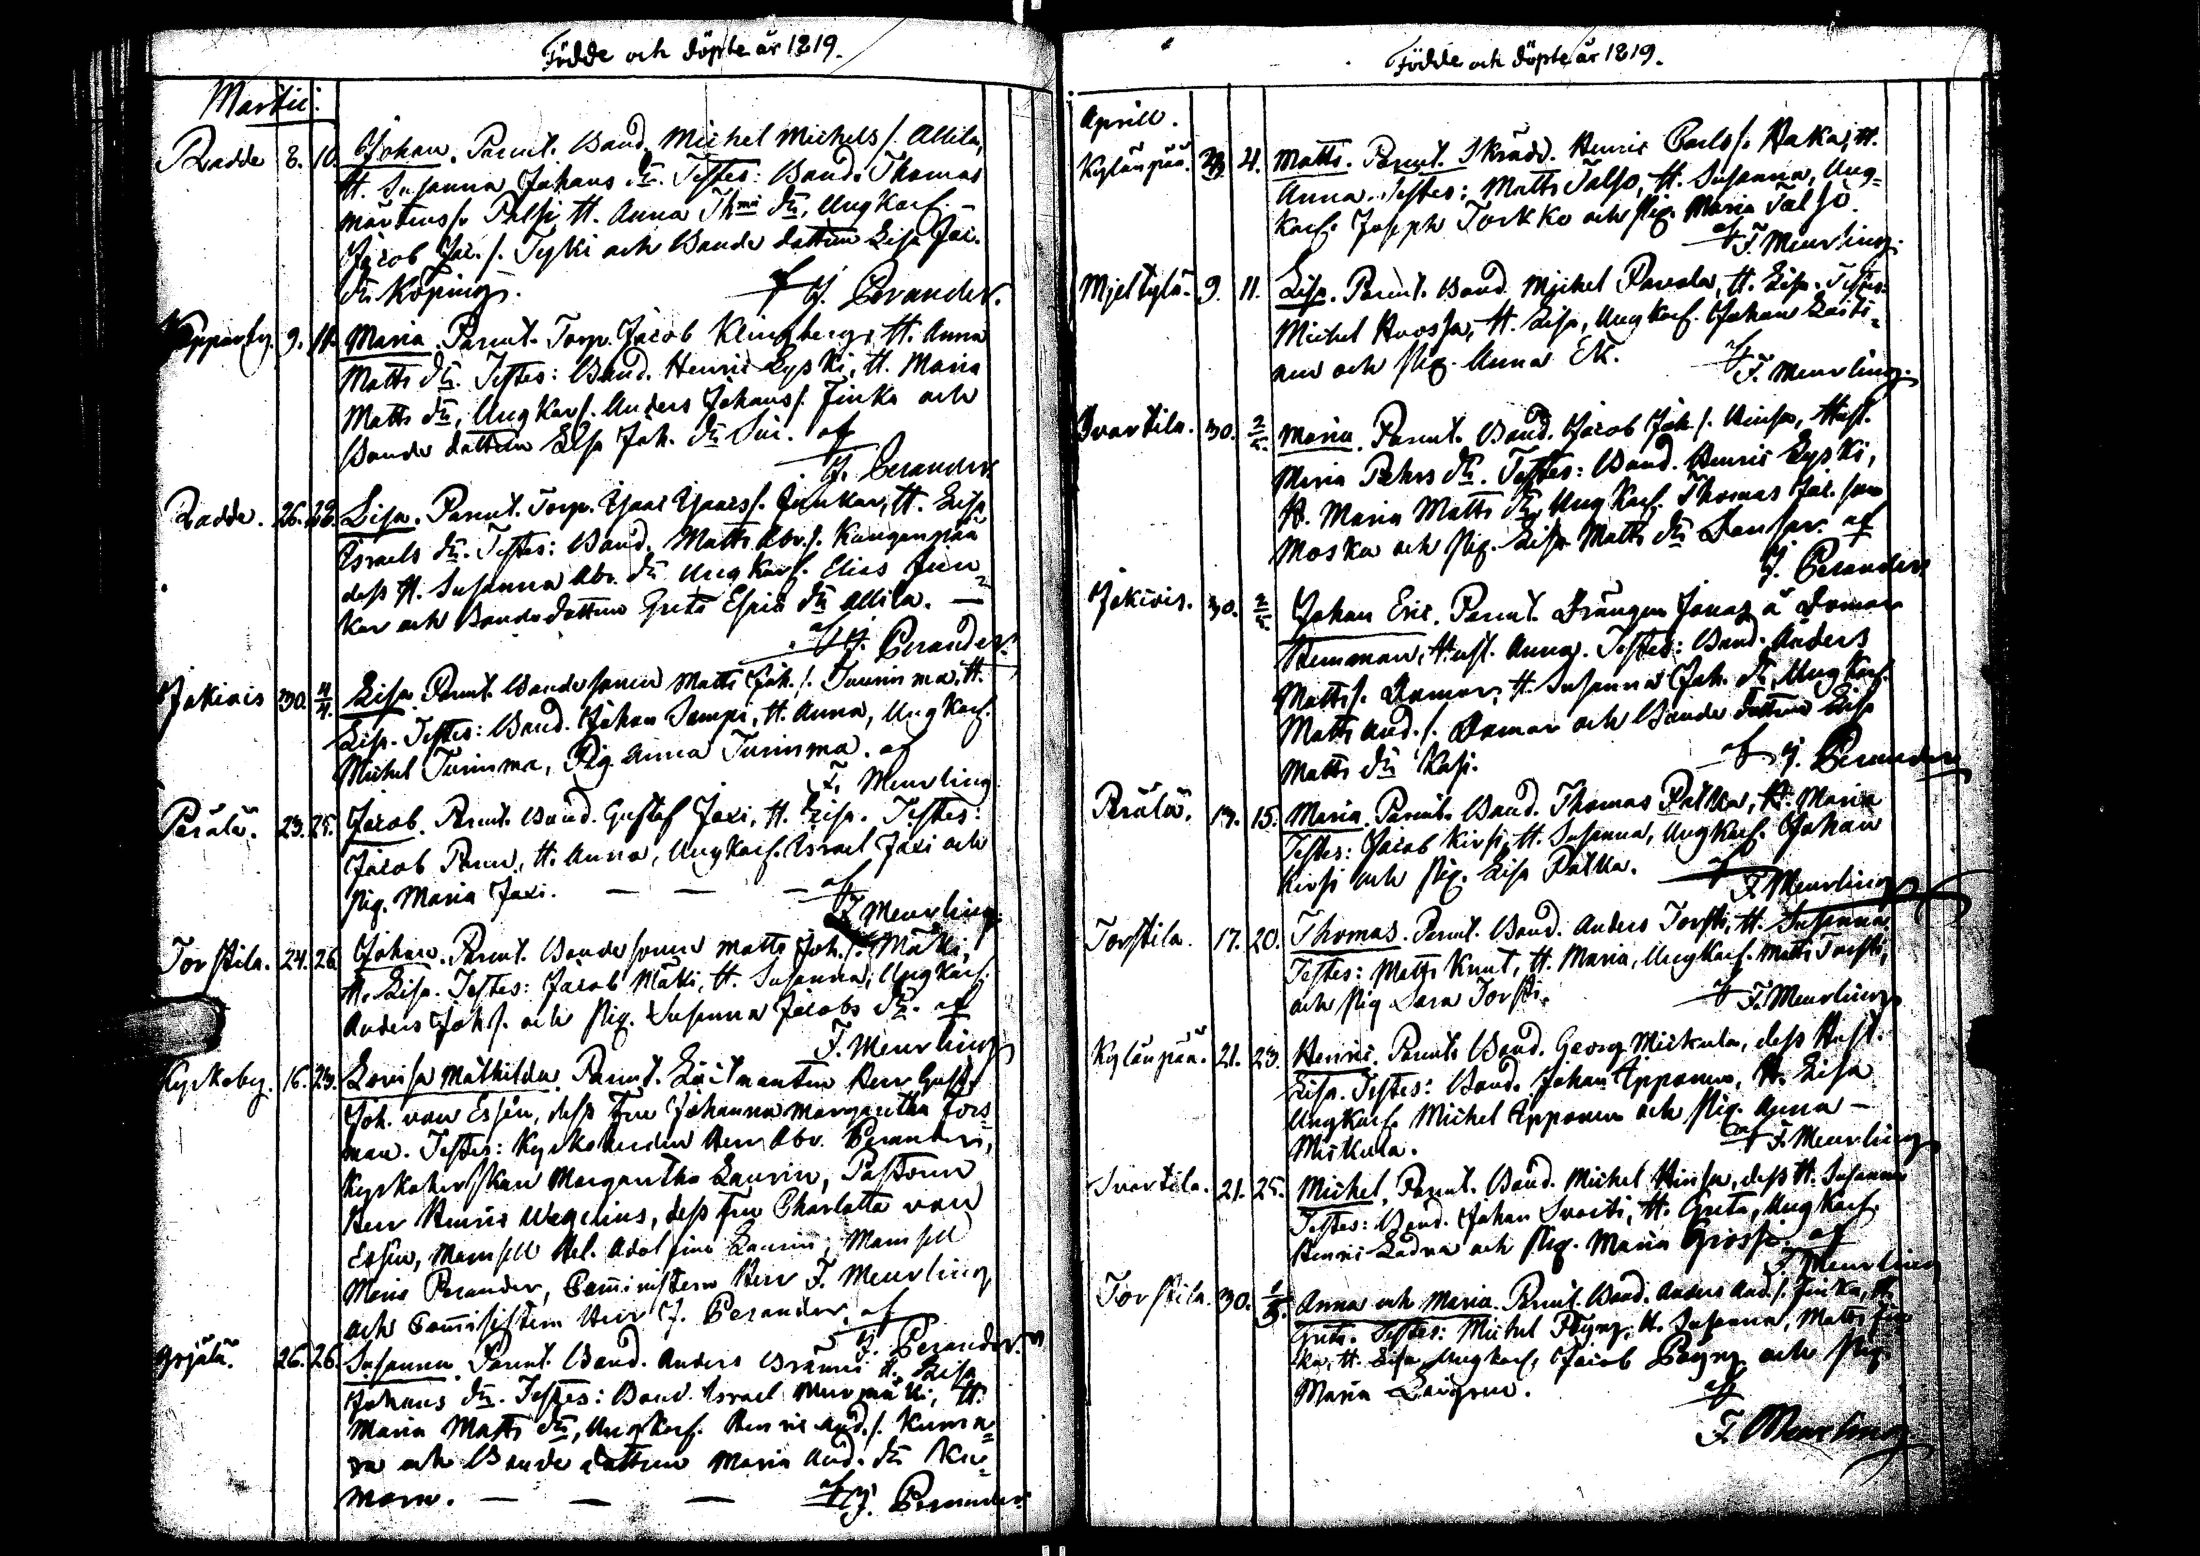 Födde och döpte år 1819.
Martii.
Radde 8. 10. Johan. Parent. Bond. Michel Michels s. Allila,
H. Susanna Johans dr. Testes: Bond. Thomas
Mårtens s. Palsi H. Anna Thms dr, Ungkarl.
Jacob Jac. s. Tyki och Bonde dottren Lisa Jac.
dr Köpings. af J. Perander.
Kopparby. 9. 11. Maria. Parent. Torp. Jacob Klingberg, H. Anna
Matts dr. Testes: Bond. Henric Lyski, H. Maria
Matts dr, Ungkarl. Anders Johans s. Finka och
Bonde dottren Lisa Joh. dr af
J. Perander
Radde. 26. 28. Lisa. Parent. Torp. Isaac Isaacs s. Junkar, H. Lisa
Israels dr. Testes: Bond. Matts Abr. s. Kangenpää
dess H. Susanna Abr. dr Ungkarl. Elias Jun-
kar och Bonde dottren Greta Esaias dr Allila. —
af J. Perander.
Jokivis 30. 4/4. Lisa. Parent. Bonde sonen Matts Joh. s. Turinma, H.
Lisa. Testes: Bond. Johan Sampi, H. Anna, Ungkarl.
Michel Turinma, Pig. Anna Turinma. af
F. Meurling
Perälä. 23. 25. Jacob. Parent. Bond. Gustaf Jaxi, H. Lisa. Testes:
Jacob H. Anna, Ungkarl. Israel Jaxi och
Pig. Maria Jaxi. — — — af
F. Meurling.
Torstila. 24. 26. Johan. Parent. Bonde sonen Matts Joh. s. Mäki,
H. Lisa. Testes: Jacob Mäki, H. Susanna, Ungkarl.
Anders Joh. s. och Pig. Susanna Jacobs dr. af
F. Meurling
Kyrkoby. 16. 23. Lovisa Mathilda. Parent. Löitnanten Herr Gust.
Joh. von Essén, dess Fru Johanna Margaretha Fors-
man. Testes: Kyrkoherden Herr Abr. Perander,
Kyrkoherdskan Margaretha Laurin, Pastoren
Herr Henric Wegelius, dess Fru Charlotta von
Essén, Mamsell Hel. Adolfina Laurin, Mamsell
Maria Perander, Comministern Herr F. Meurling
och Herr J. Perander. af
J. Perander.
Orjala. 26. 26. Susanna. Parent. Bond. Anders Brännis H. Lisa
Johans dr. Testes: Bond. Israel H.
Maria Matts dr, Ungkarl. Henric And. s. Kuma-
ra och Bonde dottren Maria And. dr Ku-
mara. — — — af J. Perander
Födde och döpte år 1819.
Aprill.
Kylänpää. 4. Matts. Parent. Skräd. Henric Carls s. Haka, H.
Anna. Testes: Matts Talso, H. Susanna, Ung-
karl. Joseph Torkko och Pig. Maria Talso.
af F. Meurling.
Mjelkylä. 9. 11. Lisa. Parent. Bond. Michel Pavola, H. Lisa. Testes:
Michel H. Lisa, Ungkarl. Johan
nen och Pig. Anna Ek. af
F. Meurling.
Svartila. 30. 2/5. Maria. Parent. Bond. Jacob Joh. s. Hinsa, Hust.
Maria Pehrs dr. Testes: Bond. Henric Lyski,
H. Maria Matts dr, Ungkarl. Thomas Jac. son
Moska och Pig. Lisa Matts dr af
J. Perander
Jokivis. 30. 2/5. Johan Eric. Parent. Drängen Jonas å Domar
Hemman, Hust. Anna. Testes: Bond. Anders
Matts s. Domar, H. Susanna Joh. dr, Ungkarl.
Matts And. s. Domar och Bonde dottren Lisa
Matts dr Kasi. af J. Perander
Perälä. 13. 15. Maria. Parent. Bond. Thomas Palka, H. Maria
Testes: Jacob Kirsi, H. Susanna, Ungkarl. Johan
Kirsi och Pig. Lisa Palka. af
F. Meurling
Torstila. 17. 20. Thomas. Parent. Bond. Anders Torsti, H. Susanna.
Testes: Matts Knut, H. Maria, Ungkarl. Matts Torsti,
och Pig Sara Torsti. af F. Meurling
Kylänpää. 21. 23. Henric. Parent. Bond. Georg Miskula, dess Hust.
Lisa. Testes: Bond. Johan Ypponen, H. Lisa
Ungkarl. Michel Ypponen och Pig. Anna —
Miskula. af F. Meurling
Svartila. 21. 25. Michel. Parent. Bond. Michel Hinsa, dess H. Susanna
Testes: Bond. Johan Svarti, H. Greta, Ungkarl.
Henric Ladva och Pig. Maria Grossi. af
F. Meurling
Torstila. 30. Anna och Maria. Parent. Bond. Anders And. s. Finka, H.
Greta. Testes: Michel H. Susanna, Matts Fin-
ka, H. Lisa, Ungkarl. Jacob och Pig.
Maria af
F. Meurling